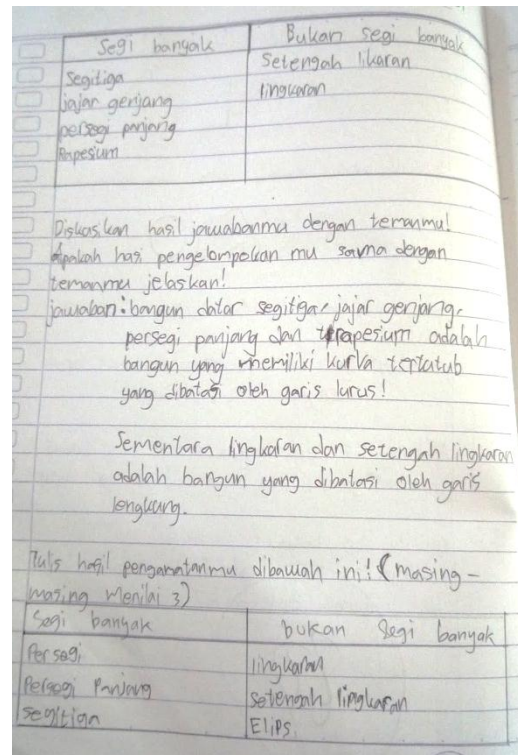 Segi banyak Bukan segi banyak
Segitiga Setengah likaran
jajar genjang lingkaran
persegi panjang
Trapesium
Diskusikan hasil jawabanmu dengan temanmu!
Apakah hasi pengelompokan mu sama dengan
temanmu jelaskan!
jawaban: bangun datar segitiga, jajar genjang,
persegi panjang dan trapesium adalah
bangun yang memiliki kurva tertutub
yang dibatasi oleh garis lurus!
Sementara lingkaran dan setengah lingkaran
adalah bangun yang dibatasi oleh garis
lengkung.
Tulis hasil pengamatanmu dibawah ini! (masing-
masing menilai 3)
Segi banyak bukan segi banyak
Persegi lingkaran
Persegi Panjang setengah lingkaran
segitiga Elips